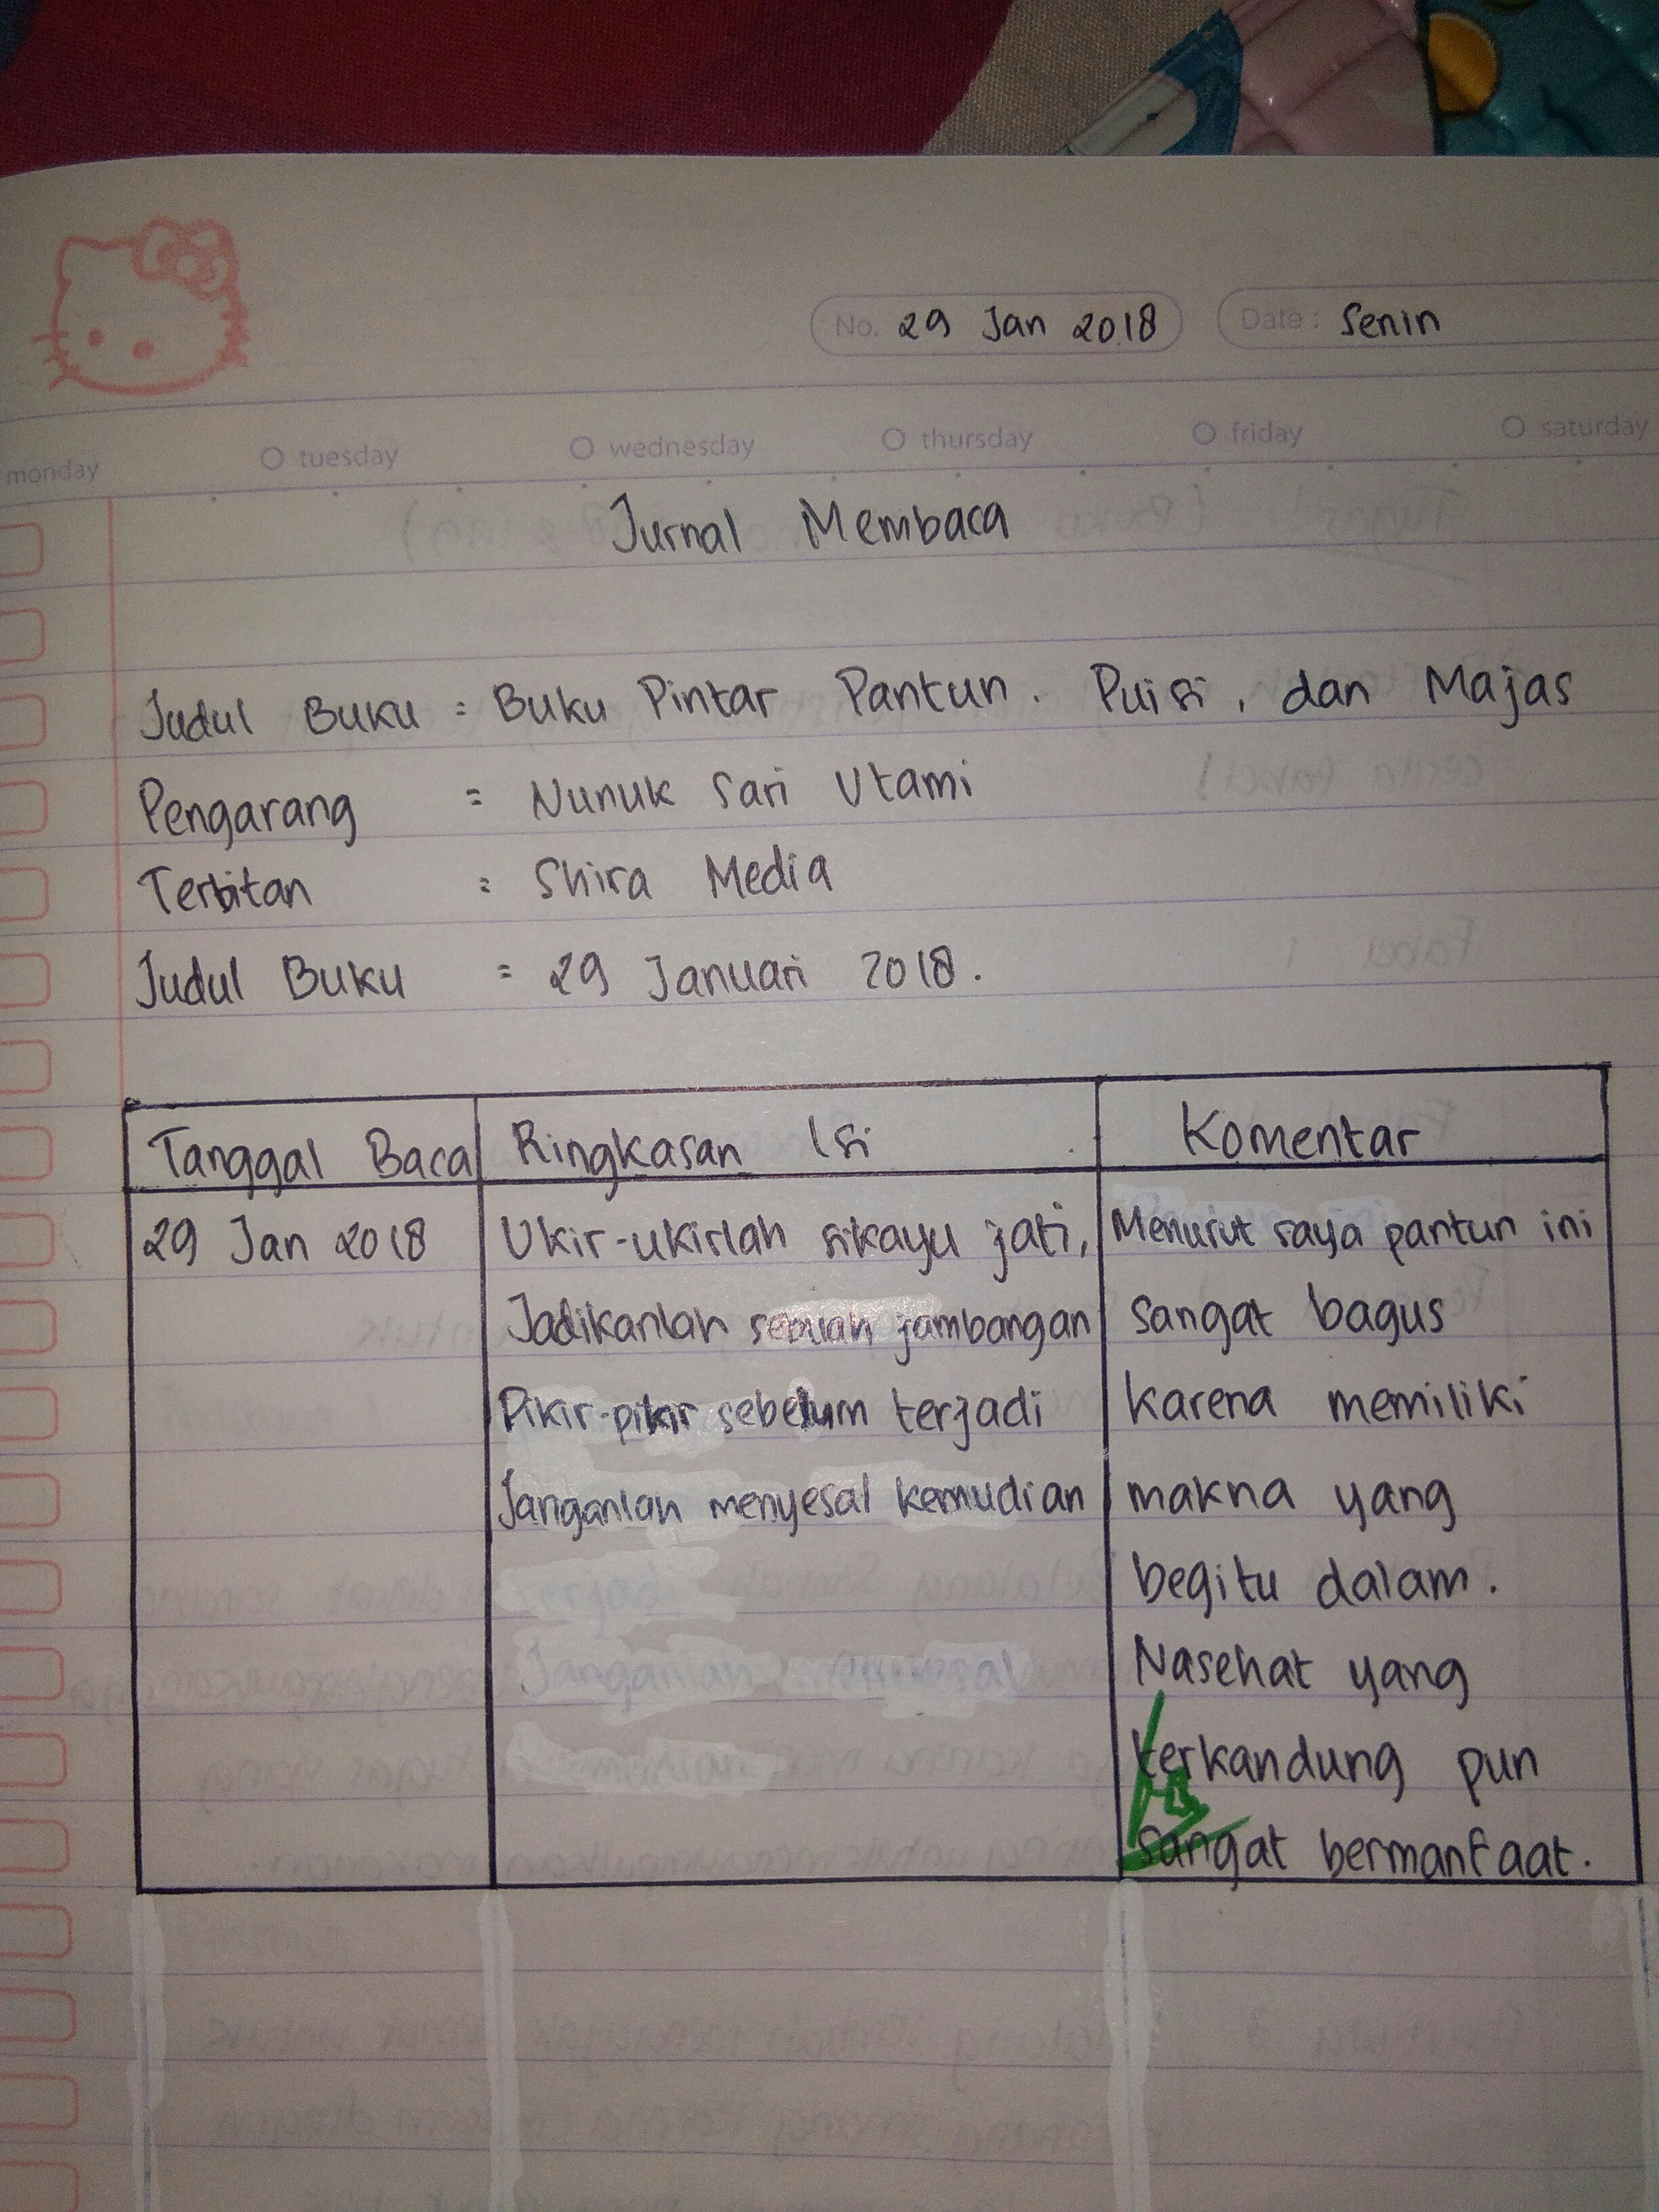 No. 29 Jan 2018 Date: Senin
monday tuesday wednesday thursday friday saturday
Jurnal Membaca
Judul Buku = Buku Pintar Pantun. Puisi, dan Majas
Pengarang = Nunuk Sari Utami
Terbitan = Shira Media
Judul Buku = 29 Januari 2018.
Tanggal Baca Ringkasan Isi Komentar
29 Jan 2018 Ukir-ukirlah sikayu jati, Menurut saya pantun ini
Jadikanlah sebuah jambangan sangat bagus
Pikir-pikir sebelum terjadi karena memiliki
Janganlah menyesal kemudian makna yang
begitu dalam.
Nasehat yang
terkandung pun
sangat bermanfaat.